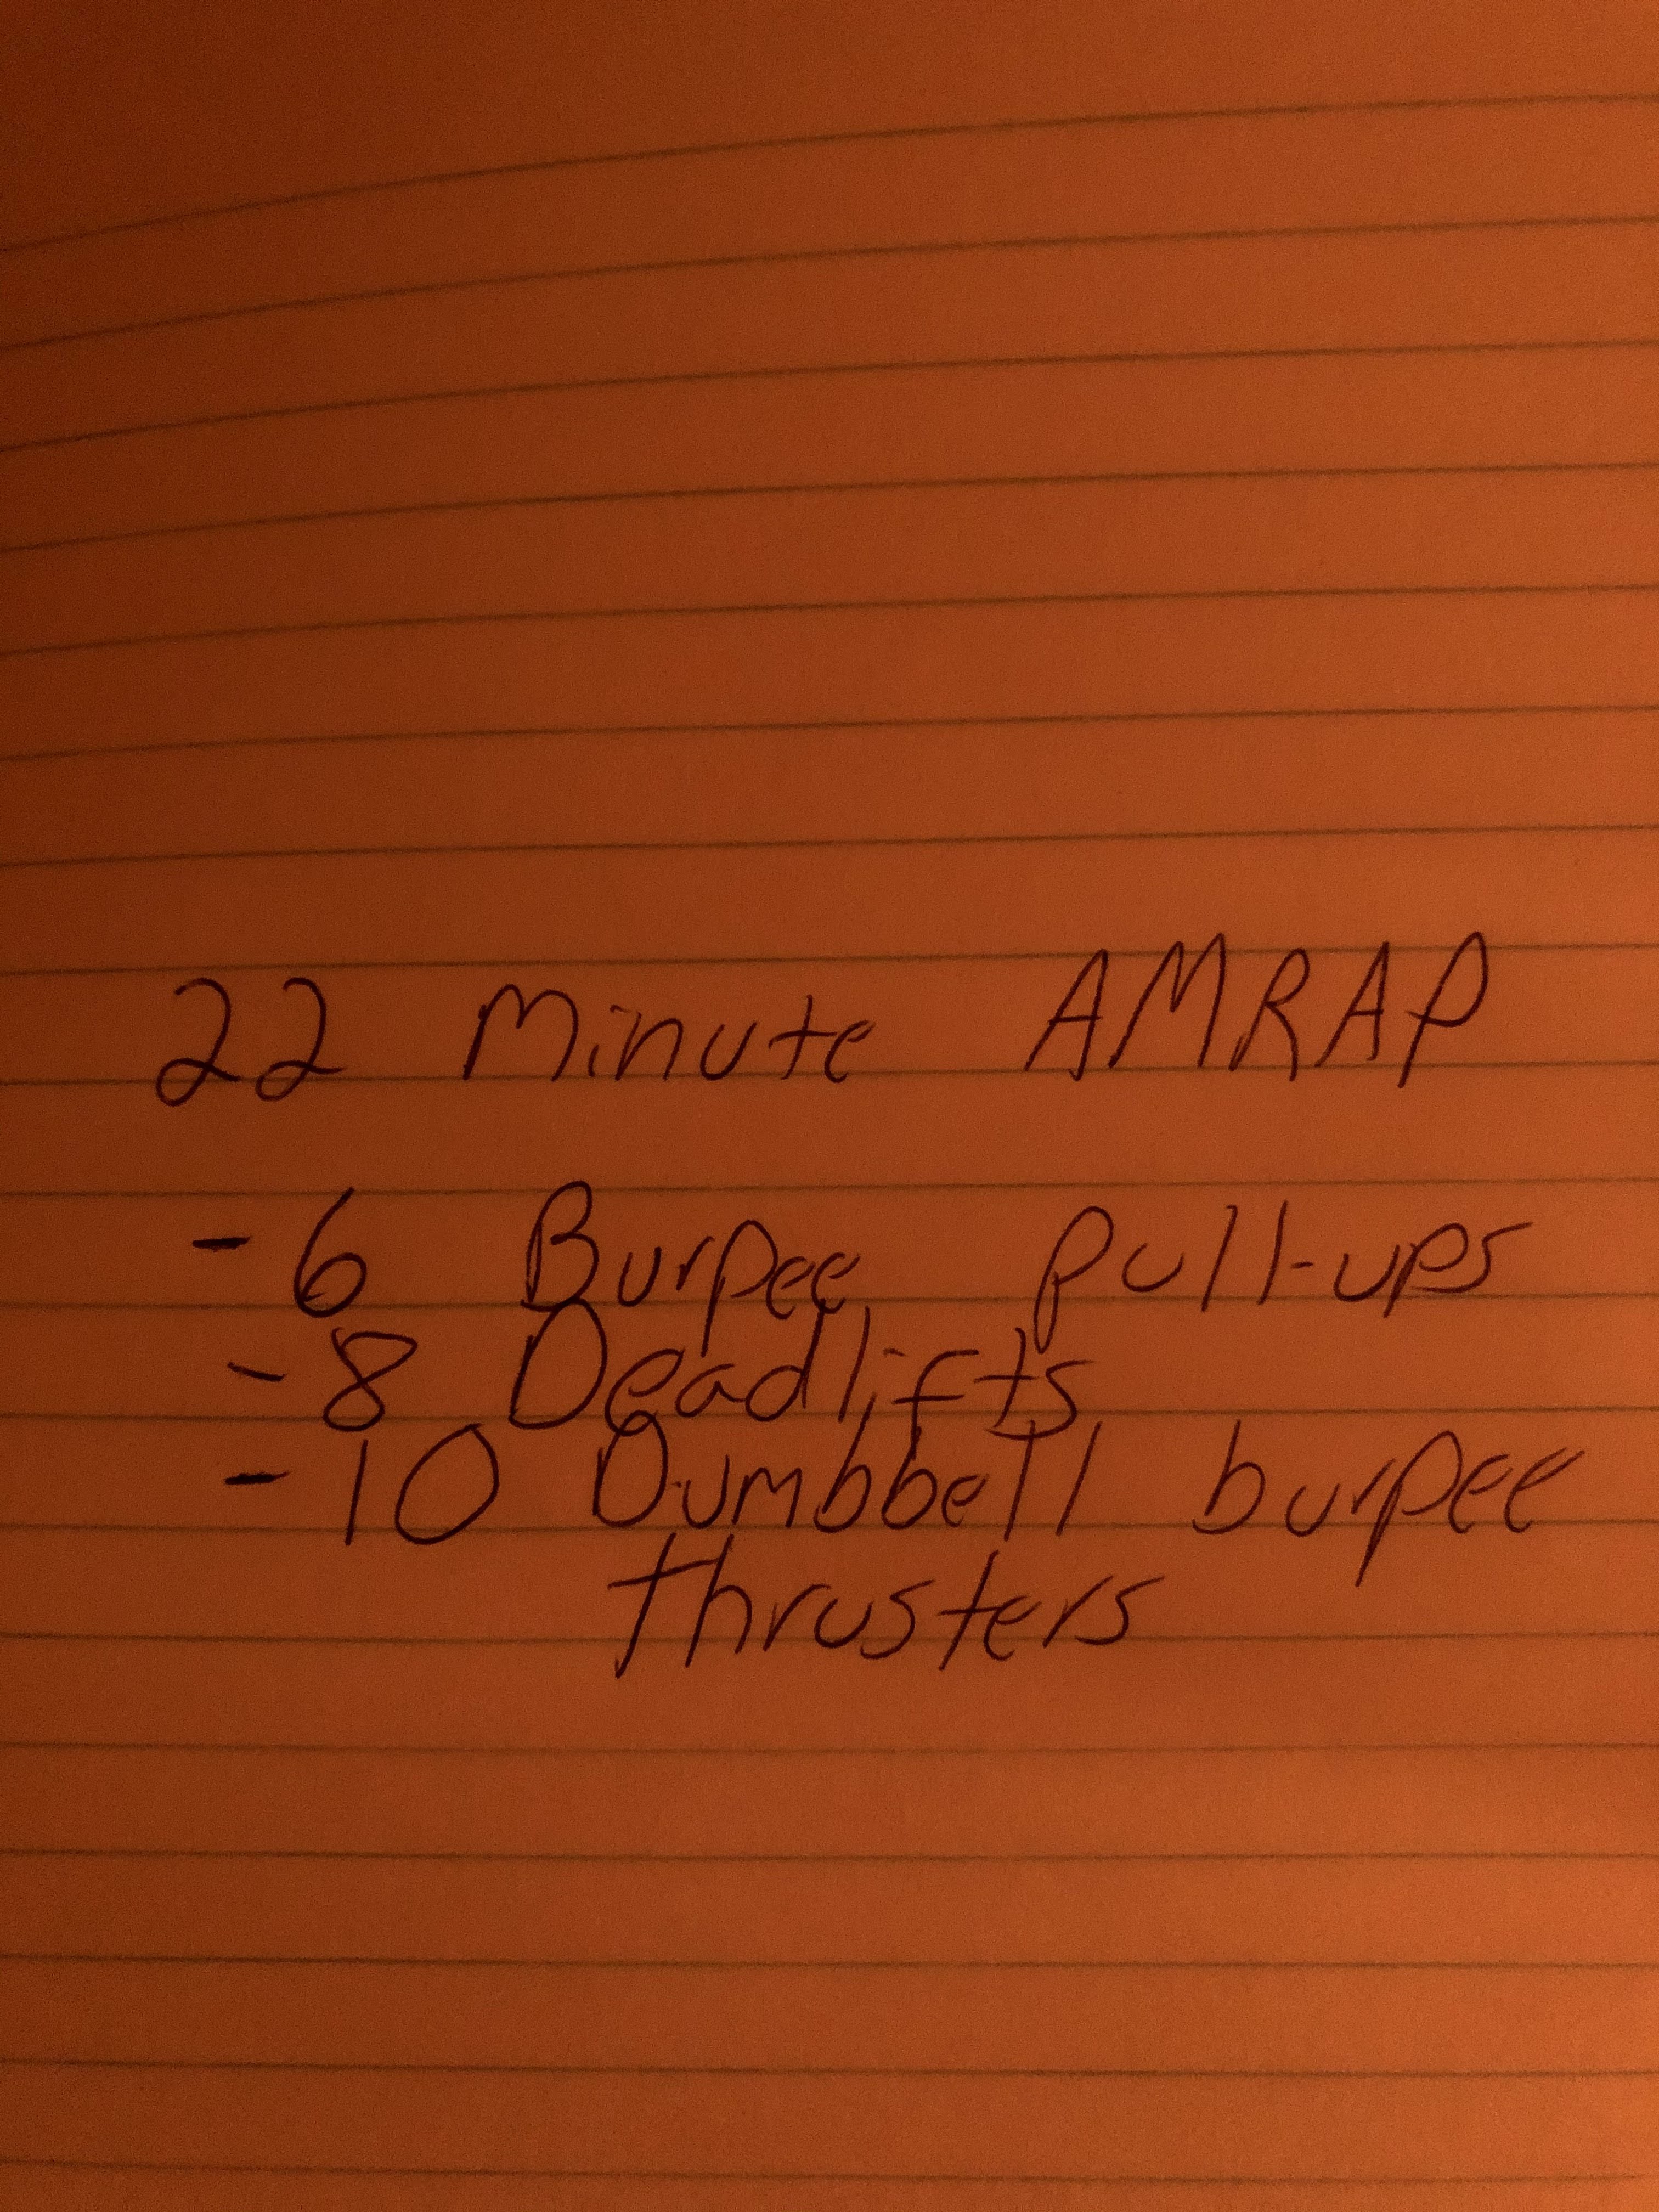 22 Minute AMRAP
- 6 Burpee pull-ups
- 8 Deadlifts
- 10 Dumbbell burpee
thrusters